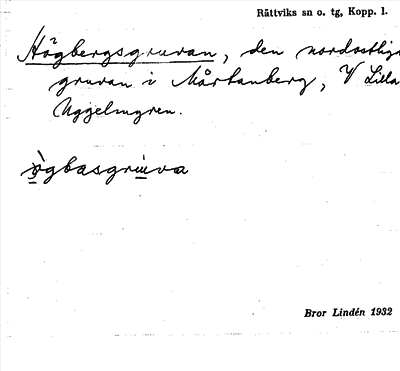 Rättviks sn o. tg, Kopp. l.
Högbergsgruvan, den nordostliga
gruvan i Mårtanberg, V Lilla
Uggelmyren.
ògbasgruva
Bror Lindén 1932